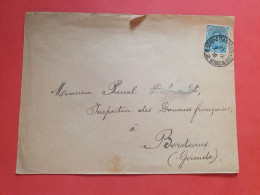 Monsieur Pascal
Inspecteur des Douanes françaises,
à
Bordeaux
(Gironde)